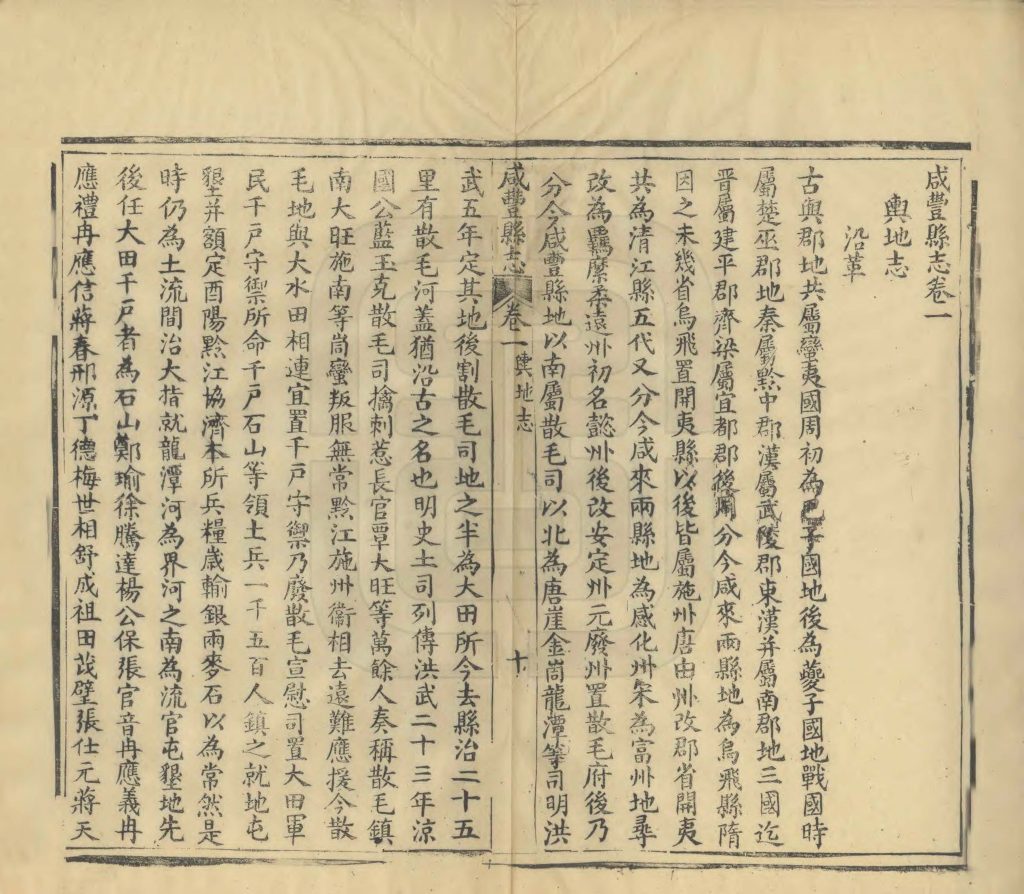 咸豐縣志卷一
輿地志
沿革
古輿郡地共屬蠻夷國周初為巴子國地後為夔子國地戰國時
屬楚巫郡地秦屬黔中郡漢屬武陵郡東漢并屬南郡地三國迄
晉屬建平郡齊梁屬宜都郡後周分今咸來兩縣地為烏飛縣隋
因之未幾省烏飛置開夷縣以後皆屬施州唐由州改郡省開夷
共為清江縣五代又分今咸來兩縣地為感化州宋為富州地尋
改為羈縻柔遠州初名懿州後改安定州元廢州置散毛府後乃
分今咸豐縣地以南屬散毛司以北為唐崖金峝龍潭等司明洪
咸豐縣志 卷一 輿地志 十
武五年定其地後割散毛司地之半為大田所今去縣治二十五
里有散毛河蓋猶沿古之名也明史土司列傳洪武二十三年涼
國公藍玉克散毛司擒刺惹長官覃大旺等萬餘人奏稱散毛鎮
南大旺施南等峝蠻叛服無常黔江施州衞相去遠難應援今散
毛地與大水田相連宜置千戶守禦乃廢散毛宣慰司置大田軍
民千戶守禦所命千戶石山等領土兵一千五百人鎮之就地屯
墾并額定酉陽黔江協濟本所兵糧歲輸銀兩麥石以為常然是
時仍為土流間治大指就龍潭河為界河之南為流官屯墾地先
後任大田千戶者為石山鄭瑜徐騰達楊公保張官音冉應義冉
應禮冉應信蔣春邢源丁德梅世相舒成祖田茂璧張仕元蔣天